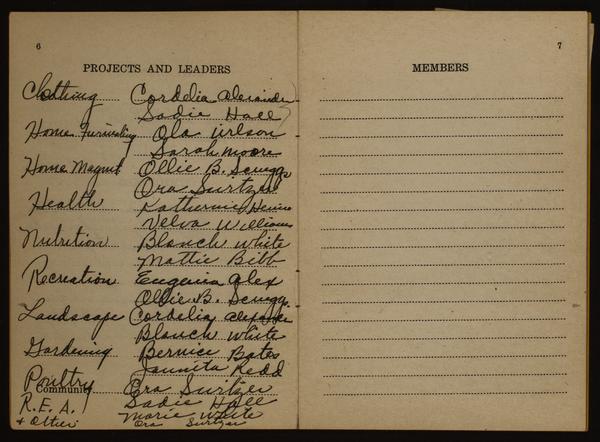 6
PROJECTS AND LEADERS
Clothing Cordelia Alexander
Sadie Hall
Home Furnishing Ola Wilson
Sarah Moore
Home Magmt Ollie B. Scruggs
Ora Suitzer
Health Katherine
Velva Williams
Nutrition Blanch White
Mattie Bibb
Recreation Eugenia Alex
Ollie B. Scruggs
Landscape Cordelia Alexander
Blanch White
Gardening Bernice Bates
Juanita Redd
Poultry Ora Suitzer
Community
R.E.A. Sadie Hall
Marie White
Ora Suitzer
7
MEMBERS